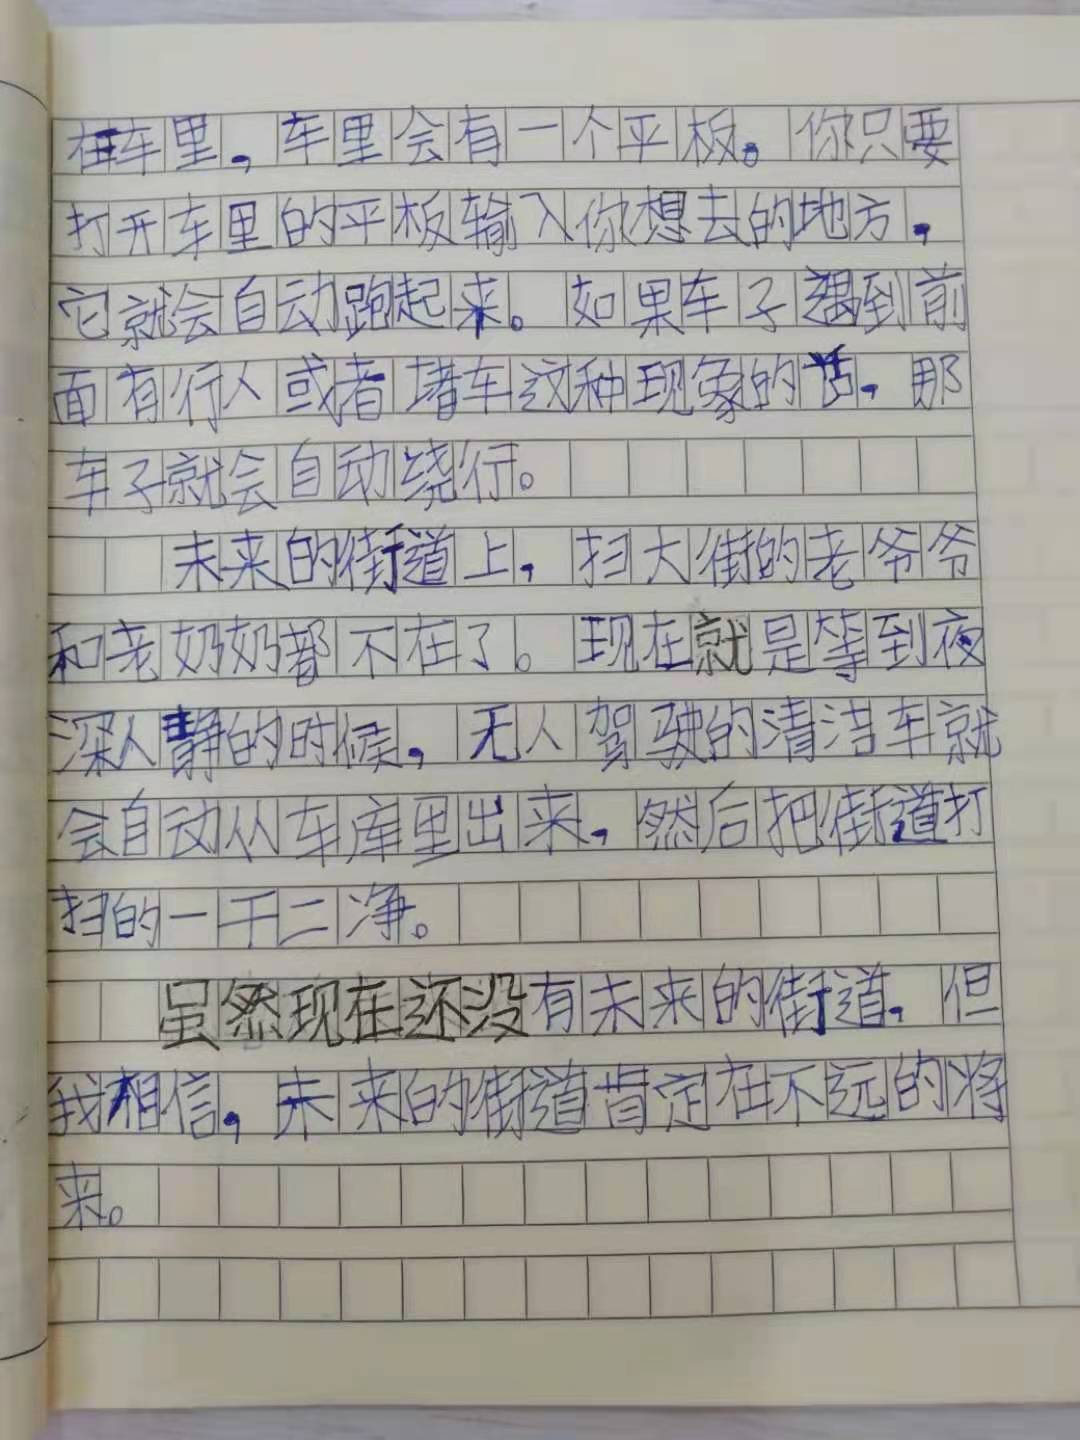 在车里，车里会有一个平板。你只要
打开车里的平板输入你想去的地方，
它就会自动跑起来。如果车子遇到前
面有行人或者堵车这种现象的话，那
车子就会自动绕行。
未来的街道上，扫大街的老爷爷
和老奶奶都不在了。现在就是等到夜
深人静的时候，无人驾驶的清洁车就
会自动从车库里出来，然后把街道打
扫的一干二净。
虽然现在还没有未来的街道，但
我相信，未来的街道肯定在不远的将
来。